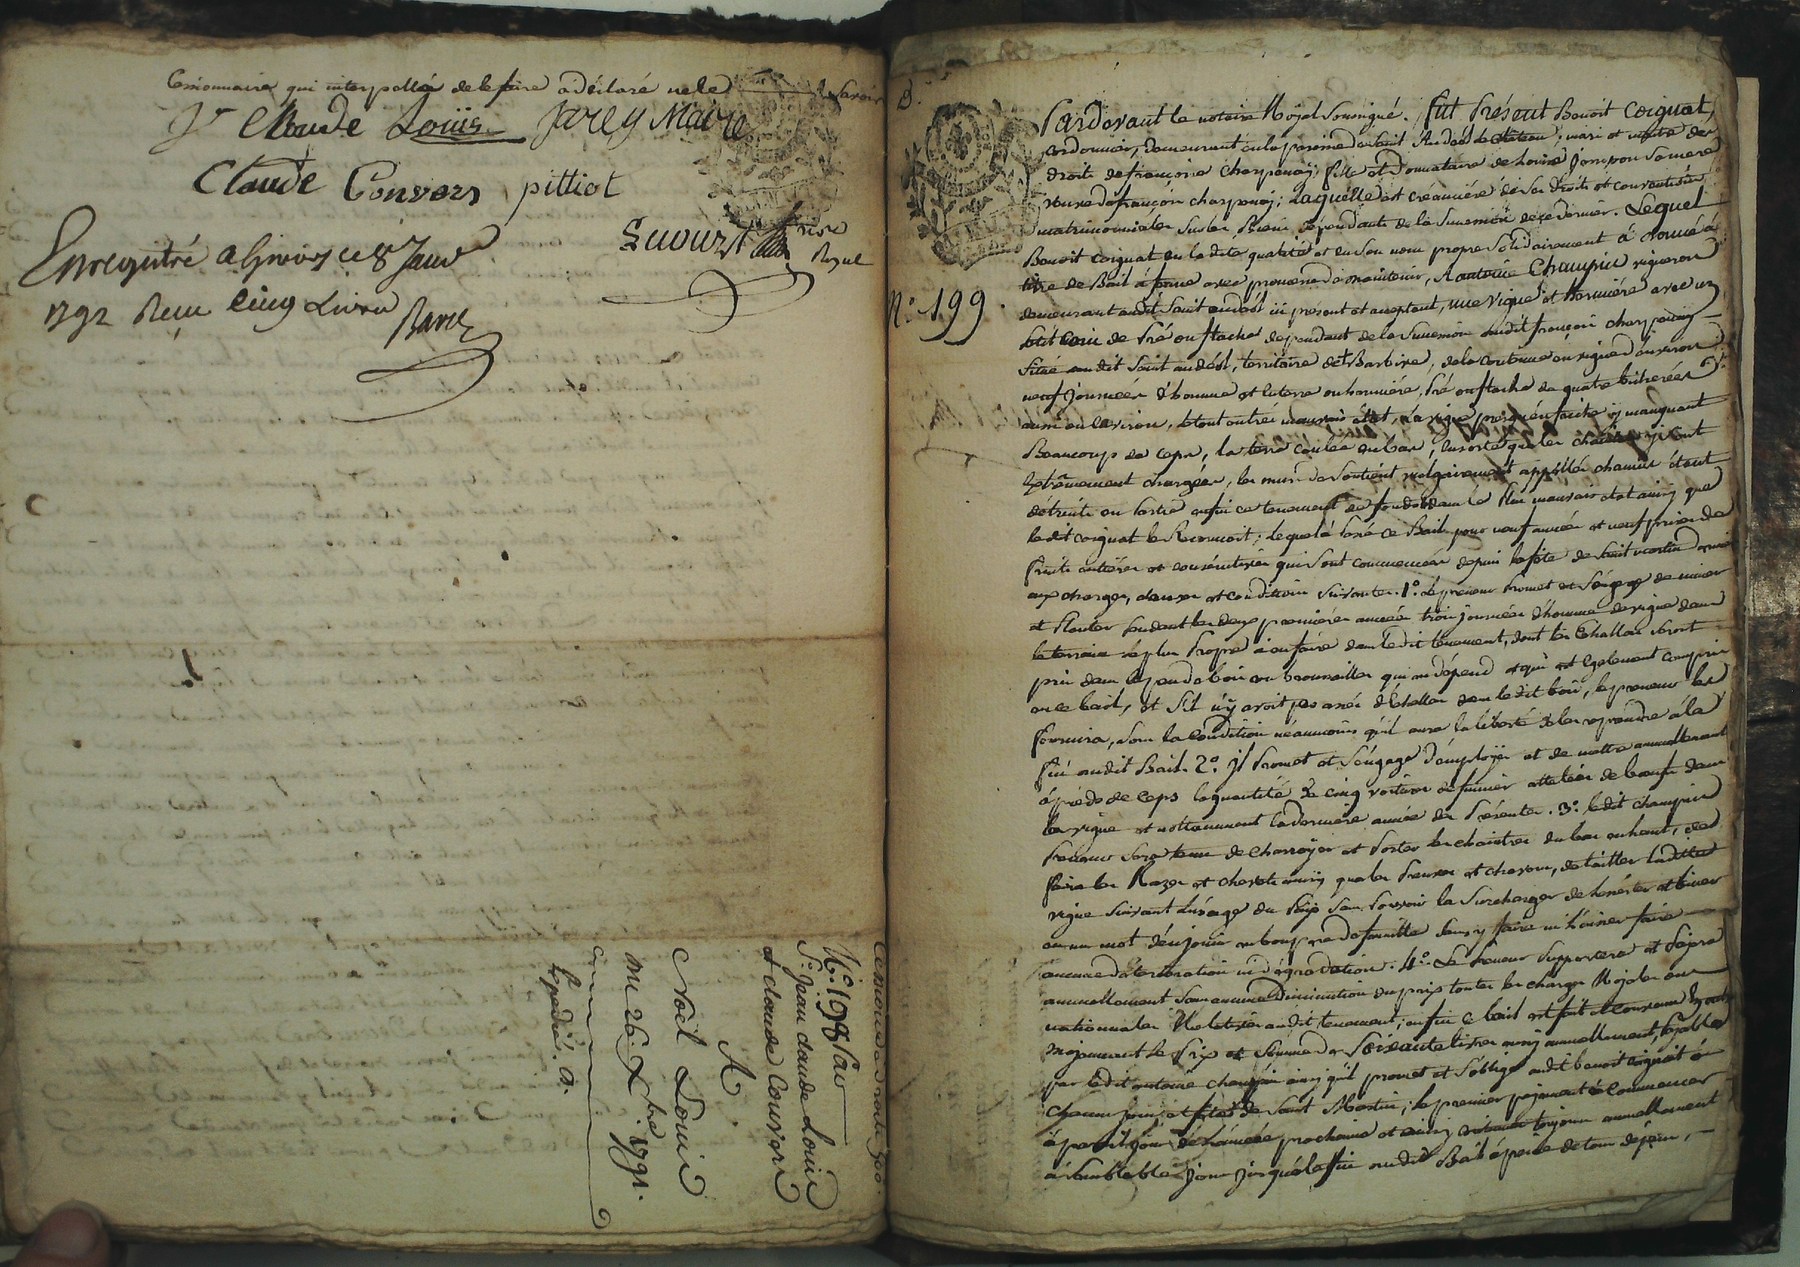 Cessionnaire qui interpellés de le faire a déclaré ne le savoir
Jn Claude Louiis Jarey Maire
Claude Convers pittiot
Ducurt
Royal
Enregistré a Givors ce 8 Janv
1792 Reçu Cinq Livres
Ravel
Cession de droits 300
N.o 198 Par
S.r Jean claude Louis
et claude Couvers
A
Noël Louis
du 26. Xbre 1791.
Expedié. a.
B.
N.o 199.
Pardevant le notaire Royal Soussigné. fut Présent Benoit Coignat,
cordonnier, demeurant en la paroisse de saint Andéol le château, mari et maitre des
droits de françoise charpenay, fille et Donnataire de Louise Jomson sa mere
veuve de françois charpenay; Laquelle est créancière de ses droits et conventions
matrimoniales sur les Biens dependants de la succession de ce dernier. Lequel
Benoit coignat en la dite qualité et en son nom propre solidairement à donné à
titre de Bail à ferme avec promesse de maintenir, à antoine Champin vigneron
demeurant audit Saint andéol ici présent et acceptant, une vigne et Hermière avec un
petit coin de Pré ou flache dependant de la succession dudit françois charpenay
Situé audit Saint andéol, territoire de Barbire, de la contenue en vigne d'environ
neuf journées d'homme et la terre ou hermière, Pré ou flache de quatre bicherées
aussi ou environ, le tout en tres mauvais état, la vigne presqu'en friche y manquant
Beaucoup de ceps, la terre coulée en bas, en sorte que les chaintres y sont
Extrêmement chargées, les murs de soutient vulgairement appellés chamée étant
détruits en partie enfin ce tenement de fonds dans le Plus mauvais état ainsi que
ledit coignat le Reconnoit; lequel a passé ce Bail pour neuf années et neuf prises de
fruits entières et consécutives qui sont commencées depuis la fête de Saint martin dernier
aux charges, clauses et conditions suivantes. 1.o Le preneur Promet et s'engage de miner
et Planter pendant les deux premières années trois journées d'homme de vigne dans
le terrain le plus Propre à en faire dans ledit tenement, dont les Echallas seront
pris dans le peu de bois ou broussailles qui en dépend et qui est Egalement compris
en ce bail, et s'il n'y avoit pas assés d'Echallas dans ledit bois, le preneur les
fournira, sous la condition néanmoins qu'il aura la liberté de les reprendre à la
fin audit Bail. 2.o Il Promet et s'engage d'employer et de mettre annuellement
à pieds de ceps la quantité de cinq voitures de fumier attelées de bœufs dans
la vigne et nottamment la derniere année des Présentes. 3.o ledit champin
Preneur sera tenu de charroyer et Porter les chaintres du bas en haut, de
faire les Razes et chevets ainsi que les Preuses et chavons, de tailler ladite
vigne suivant l'usage du Païs sans Pouvoir la surcharger de la fossoyer et biner
en un mot d'en jouir en bon pere de famille sans y faire ni laisser faire
aucune détérioration ni dégradation. 4.o Le Preneur supportera et Païra
annuellement sans aucune Diminution du prix toutes les charges Royales ou
nationnales Relatives audit tenement; enfin ce bail est fait
moyennant le Prix et Somme de Soixante livres aussi annuellement, Payables
par ledit antoine champin ainsi qu'il promet et s'oblige audit benoit coignat à
chacun jour et fête de saint Martin; le premier payement à commencer
à pareil jour de l'année prochaine et ainsi toujours annuellement
à semblable jour jusqu'à la fin audit Bail à peine de tous dépens,